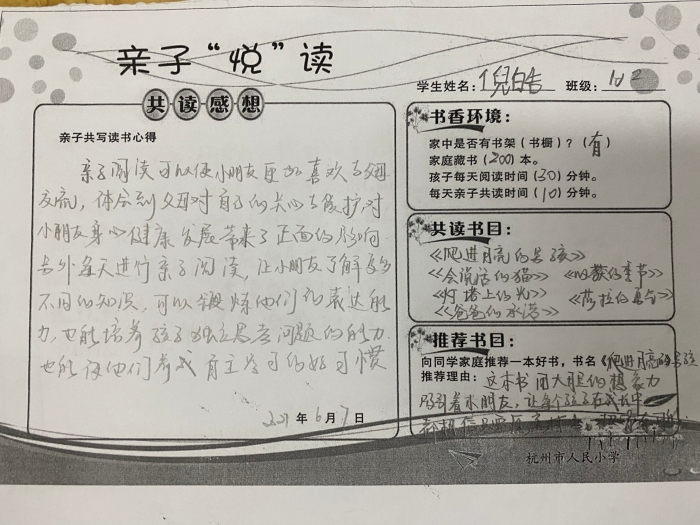 亲子“悦”读
学生姓名：倪皓 班级：102
共读感想
亲子共写读书心得
亲子阅读可以使小朋友更加喜欢与父母
交流，体会到父母对自己的关心与爱护，对
小朋友身心健康发展带来了正面的影响
另外每天进行亲子阅读，让小朋友了解更多
不同的知识，可以锻炼他们的表达能
力，也能培养孩子独立思考问题的能力
也能让他们养成自主学习的好习惯
2021年6月7日
书香环境：
家中是否有书架（书橱）？（有）
家庭藏书（200）本。
孩子每天阅读时间（30）分钟。
每天亲子共读时间（10）分钟。
共读书目：
《爬进月亮的男孩》
《会说话的猫》《收获的季节》
《灯塔上的光》《莎拉的勇气》
《爸爸的承诺》
推荐书目：
向同学家庭推荐一本好书，书名《爬进月亮的男孩
推荐理由：这本书用大胆的想象力
吸引着小朋友，让每个孩子在
都相信
杭州市人民小学